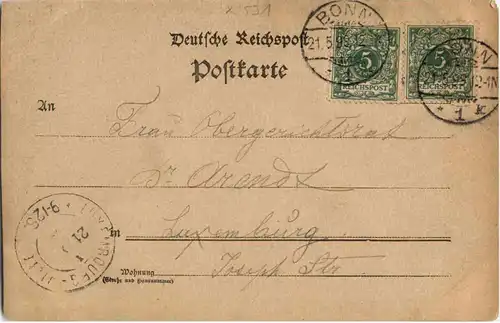 x 531
Deutsche Reichspost
Postkarte
BONN
21.5.99
* 1
5
REICHSPOST
5
REICHSPOST
BONN
* 1 k
An
Frau Obergerichtsrat
Dr Arendt
in Luxemburg
Joseph Str
Wohnung
(Straße und Hausnummer)
LUXEMBOURG-VILLE
9-12S
21